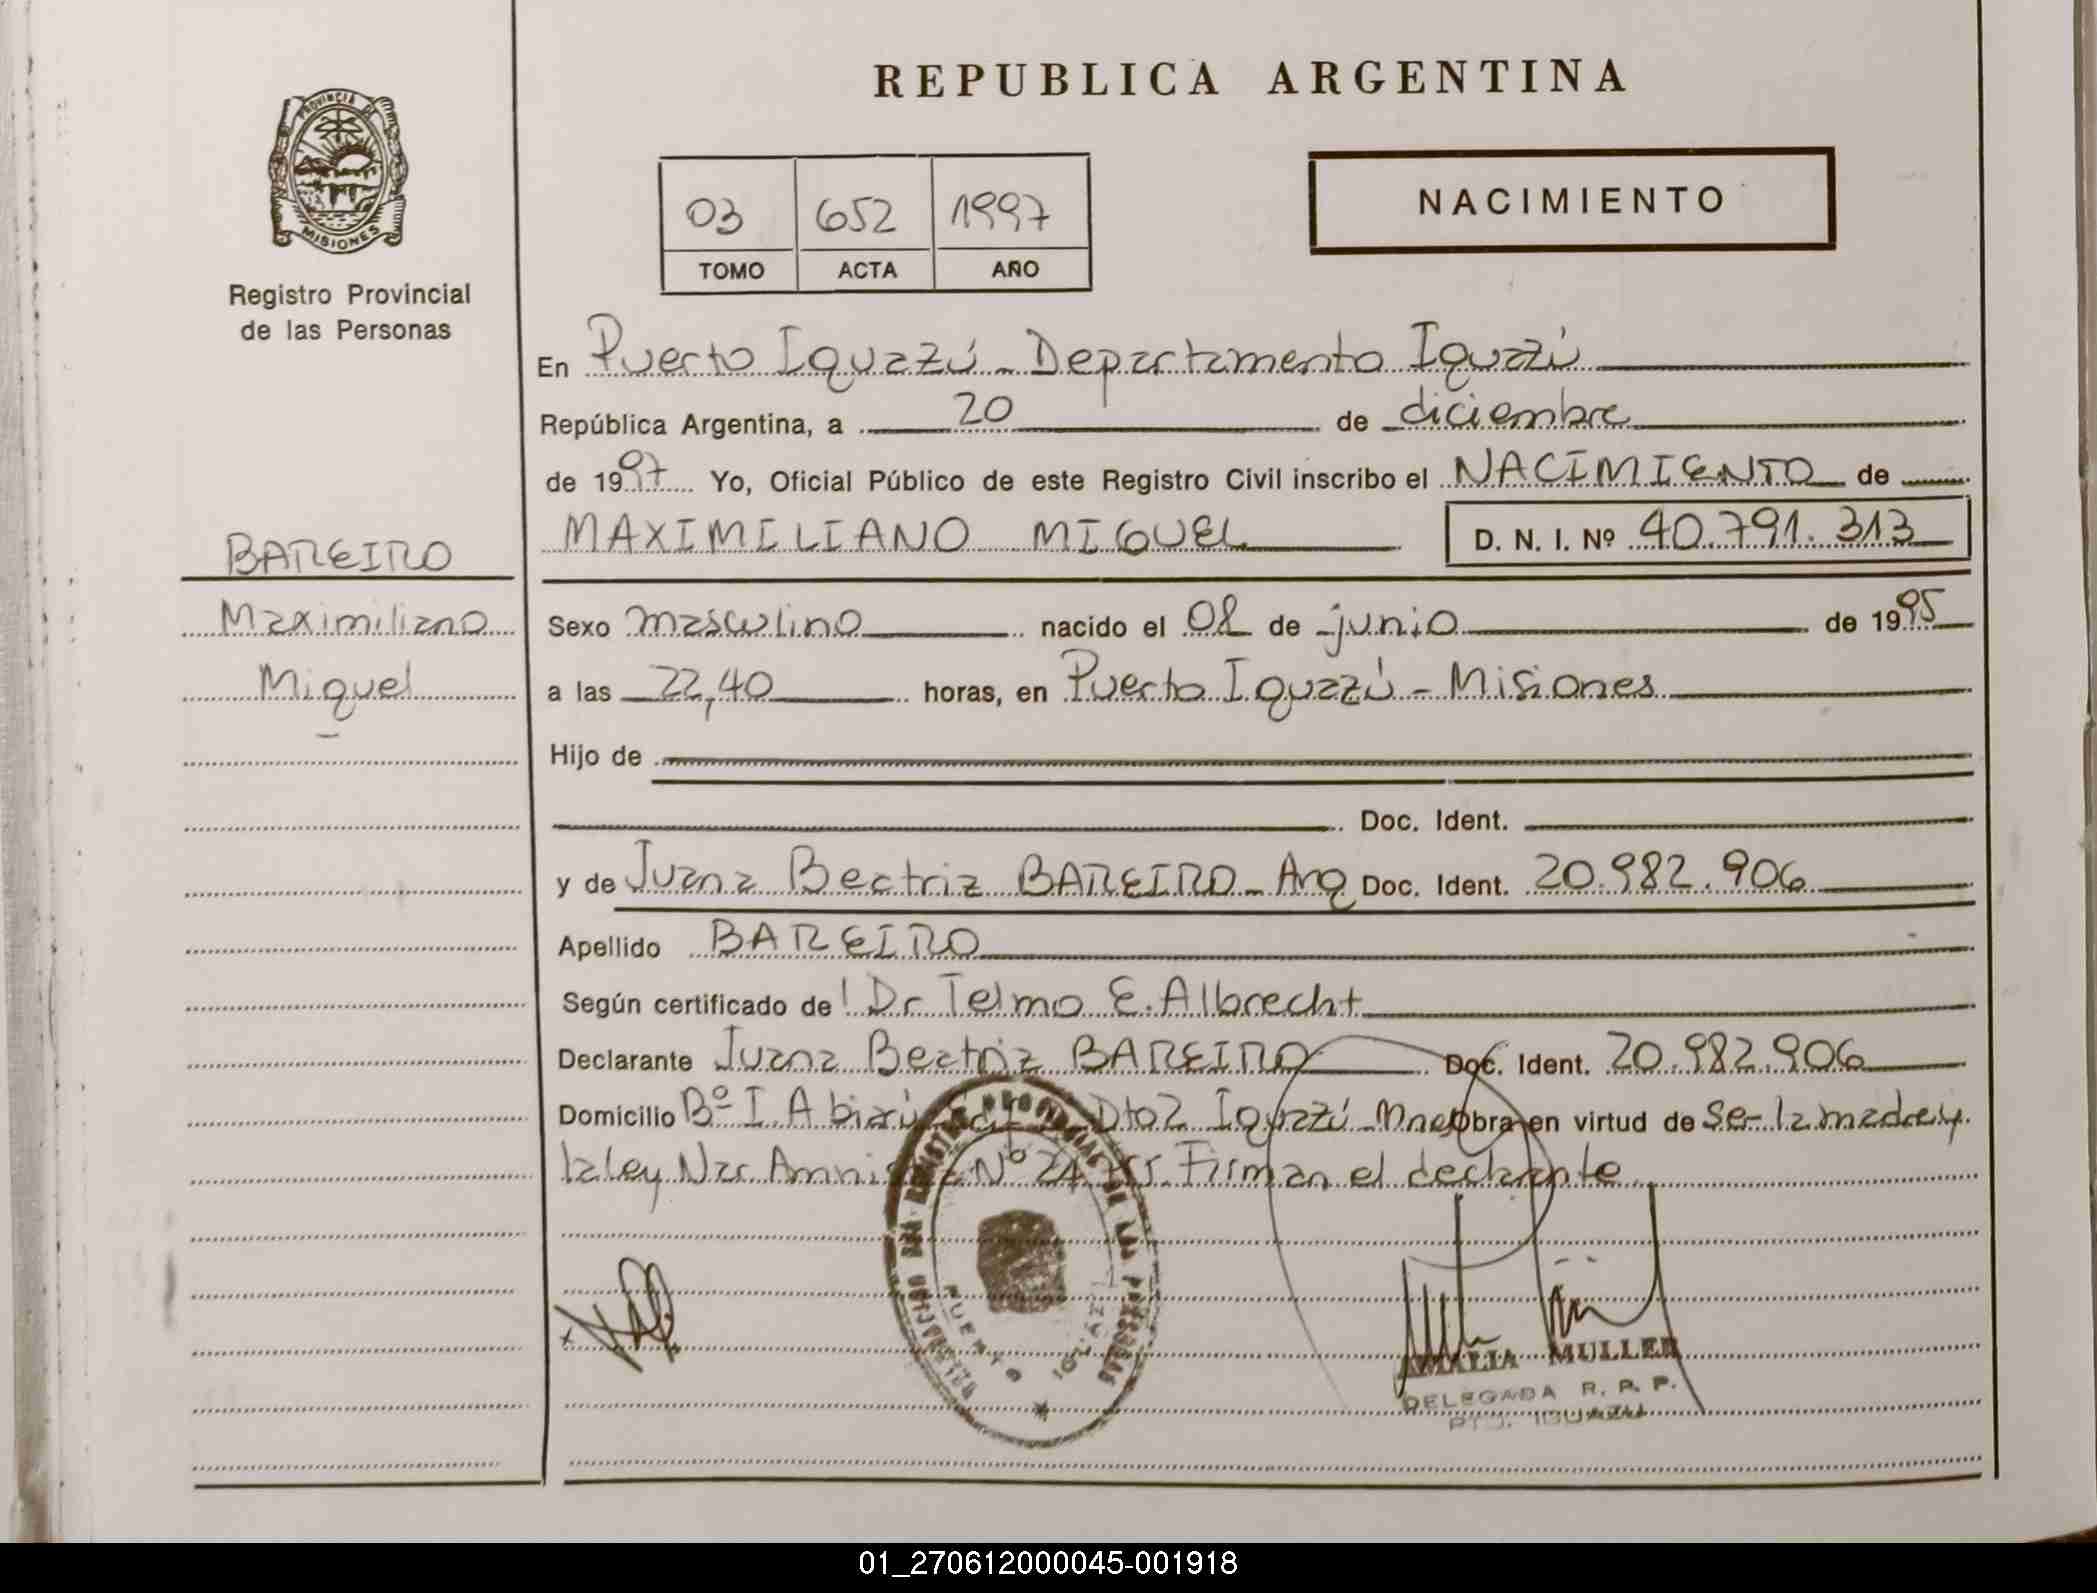 PROVINCIA DE
MISIONES
Registro Provincial
de las Personas
BAREIRO
Maximiliano
Miguel
REPUBLICA ARGENTINA
03 652 1997
TOMO ACTA AÑO
NACIMIENTO
En Puerto Iguazú - Departamento Iguazú
República Argentina, a 20 de diciembre
de 1997 Yo, Oficial Público de este Registro Civil inscribo el NACIMIENTO de
MAXIMILIANO MIGUEL D. N. I. Nº 40.791.313
Sexo masculino nacido el 08 de junio de 1995
a las 22,40 horas, en Puerto Iguazú - Misiones
Hijo de
Doc. Ident.
y de Juana Beatriz BAREIRO - Arg Doc. Ident. 20.982.906
Apellido BAREIRO
Según certificado de Dr Telmo E. Albrecht
Declarante Juana Beatriz BAREIRO Doc. Ident. 20.982.906
Domicilio Bº I. Dto 2 Iguazú - Mnes Obra en virtud de ser la madre y
la ley Nac. Nº Firman el declarante
REGISTRO PROVINCIAL DE LAS PERSONAS
PUERTO IGUAZU
AMALIA MULLER
DELEGADA R. P. P.
PTO. IGUAZU
01_270612000045-001918